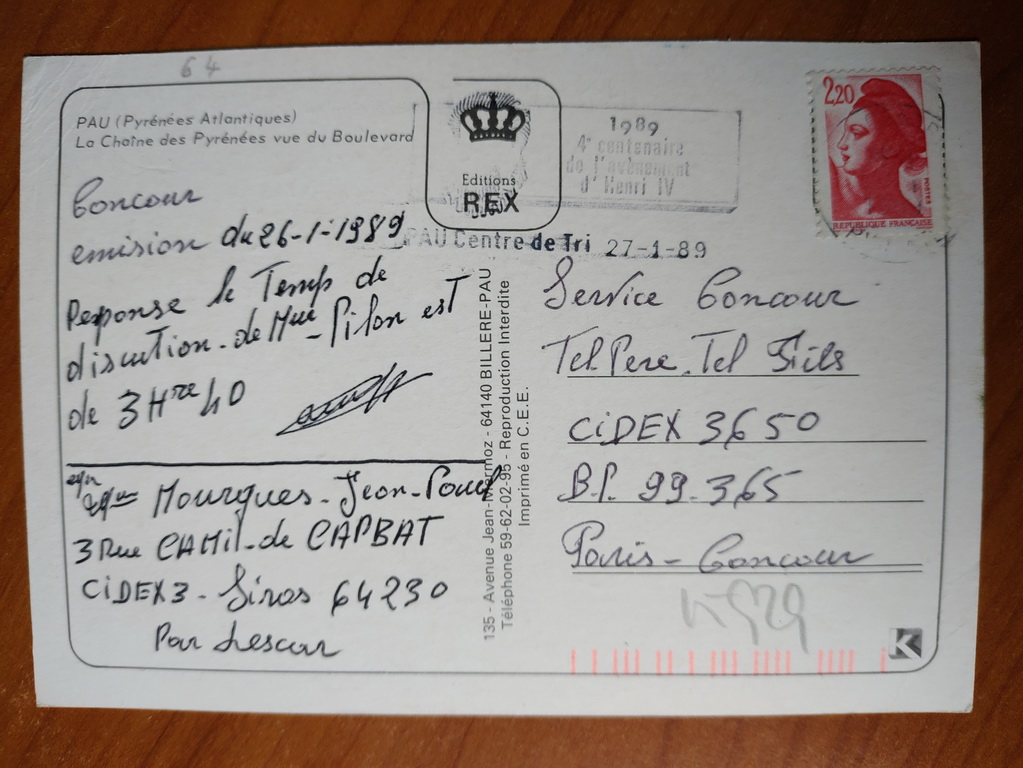 64
PAU (Pyrénées Atlantiques)
La Chaîne des Pyrénées vue du Boulevard
Editions
REX
1989
4e centenaire
de l'avènement
d'Henri IV
PAU Centre de Tri 27-1-89
2,20
POSTES
REPUBLIQUE FRANÇAISE
Concour
emision du 26-1-1989
Reponse le Temp de
discution-de Mme-Pilon est
de 3Hre 40
Mourgues-Jean-Paul
3 Rue CAMil-de CAPBAT
CiDEX3-Siros 64230
Par Lescar
135 - Avenue Jean-Mermoz - 64140 BILLERE-PAU
Téléphone 59-62-02-95 - Reproduction Interdite
Imprimé en C.E.E.
Service Concour
Tel Pere. Tel Fils
CiDEX 3650
B.P. 99-365
Paris-Concour
K